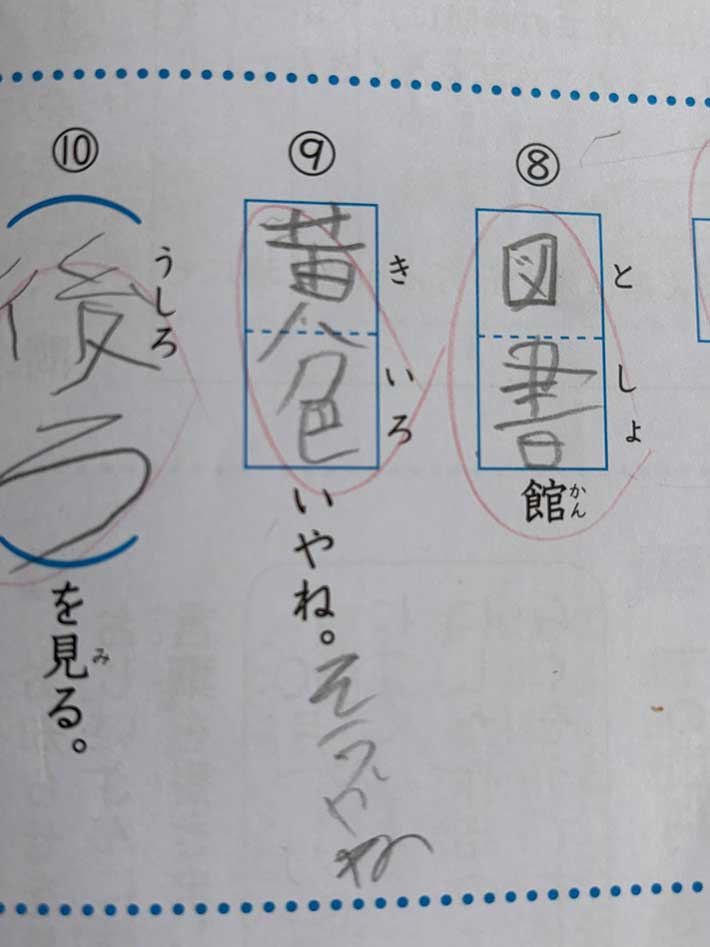 ⑧
図書館
としょ
かん
⑨
黄色いやね。そうやね
きいろ
⑩
後ろを見る。
うしろ
み